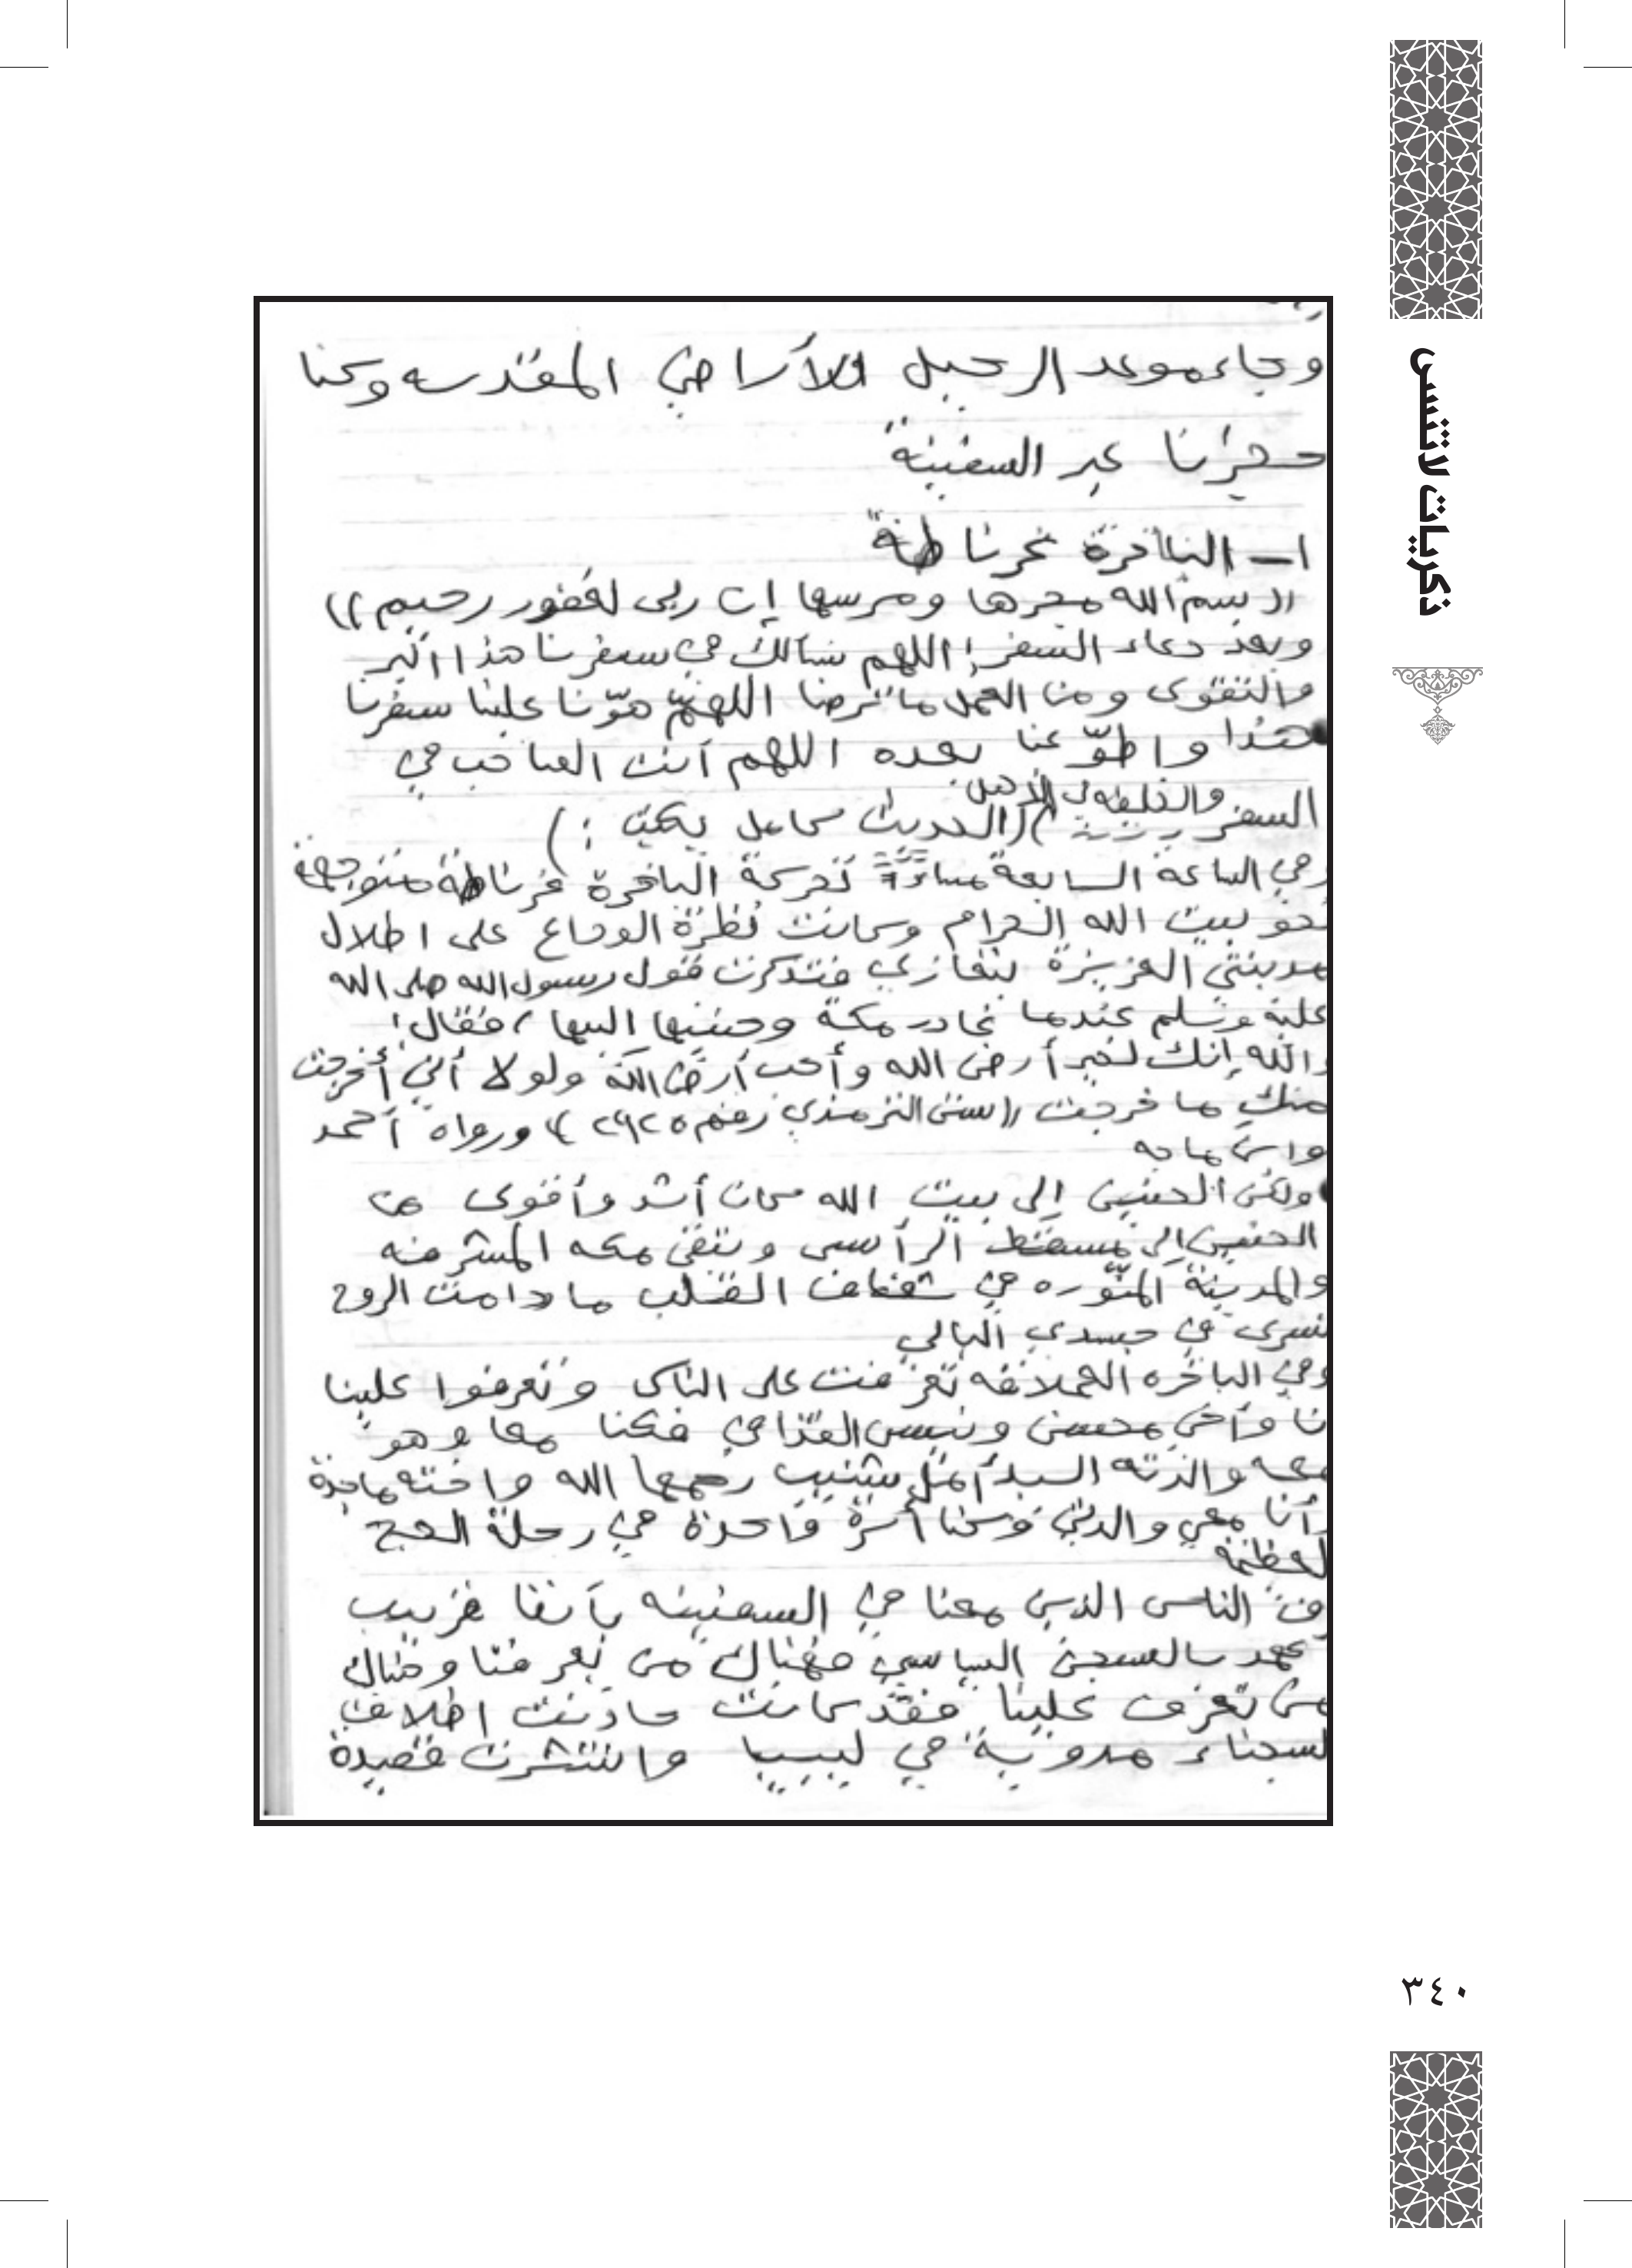 ذكريات لا تنسى
وجاء موعد الرحيل للأراضي المقدسه وكنا
حجزنا عبر السفينة
١ـ الباخرة غرناطة
((بسم الله مجرها ومرسها إن ربى لغفور رحيم))
وبعد دعاء السفر: اللهم نسألك في سفرنا هذا البر
والتقوى ومن العمل ما ترضا اللهمّ هوّنا علينا سفرنا
هذا واطوّ عنا بعده اللهم أنت الصاحب في
السفر والخليفه في الأهل (الحديث كامل يكتب:)
وفي الساعة السابعة مساءً تحركة الباخرة غرناطة متوجهة
نحو بيت الله الحرام وكانت نظرة الوداع على اطلال
مدينتي العزيزة بنغازي فتذكرت قول رسول الله صلى الله
عليه وسلم عندما غادر مكة وحنينها اليها، فقال:
والله إنك لخير أرض الله وأحب أرض الله ولولا أني أخرجت
منك ما خرجت ((سنن الترمذي رقم ٢٩٢٥)) ورواه أحمد
وابن ماجه
ولكن الحنين إلى بيت الله كان أشد وأقوى من
الحنين إلى مسقط الرأس وتبقى مكه المشرفه
والمدينة المنّوره في شغاف القلب ما دامت الروح
تسرى في جسدي البالي
وفي الباخره العملاقه تعرفت على الناس وتعرفوا علينا
نا وأخي محسن ونيس القذافي فكنا معا وهو
معه والدته السيدة أمل شنيب رحمها الله واخته ماجدة
وأنا معي والدتي وكنا أسرة واحدة في رحلة الحج
لعظيمه
الناس الذين معنا في السفينه بأننا قريب
عهد بالسجن السياسي فهناك من يعرفنا وهناك
من تعرف علينا فقد كانت حادثت اطلاق
لسجناء مدوية في ليبيا وانتشرت قصيدة
٣٤٠